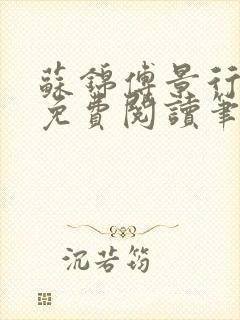 蘇錦傅景行
免費閱讀筆
沉若筠